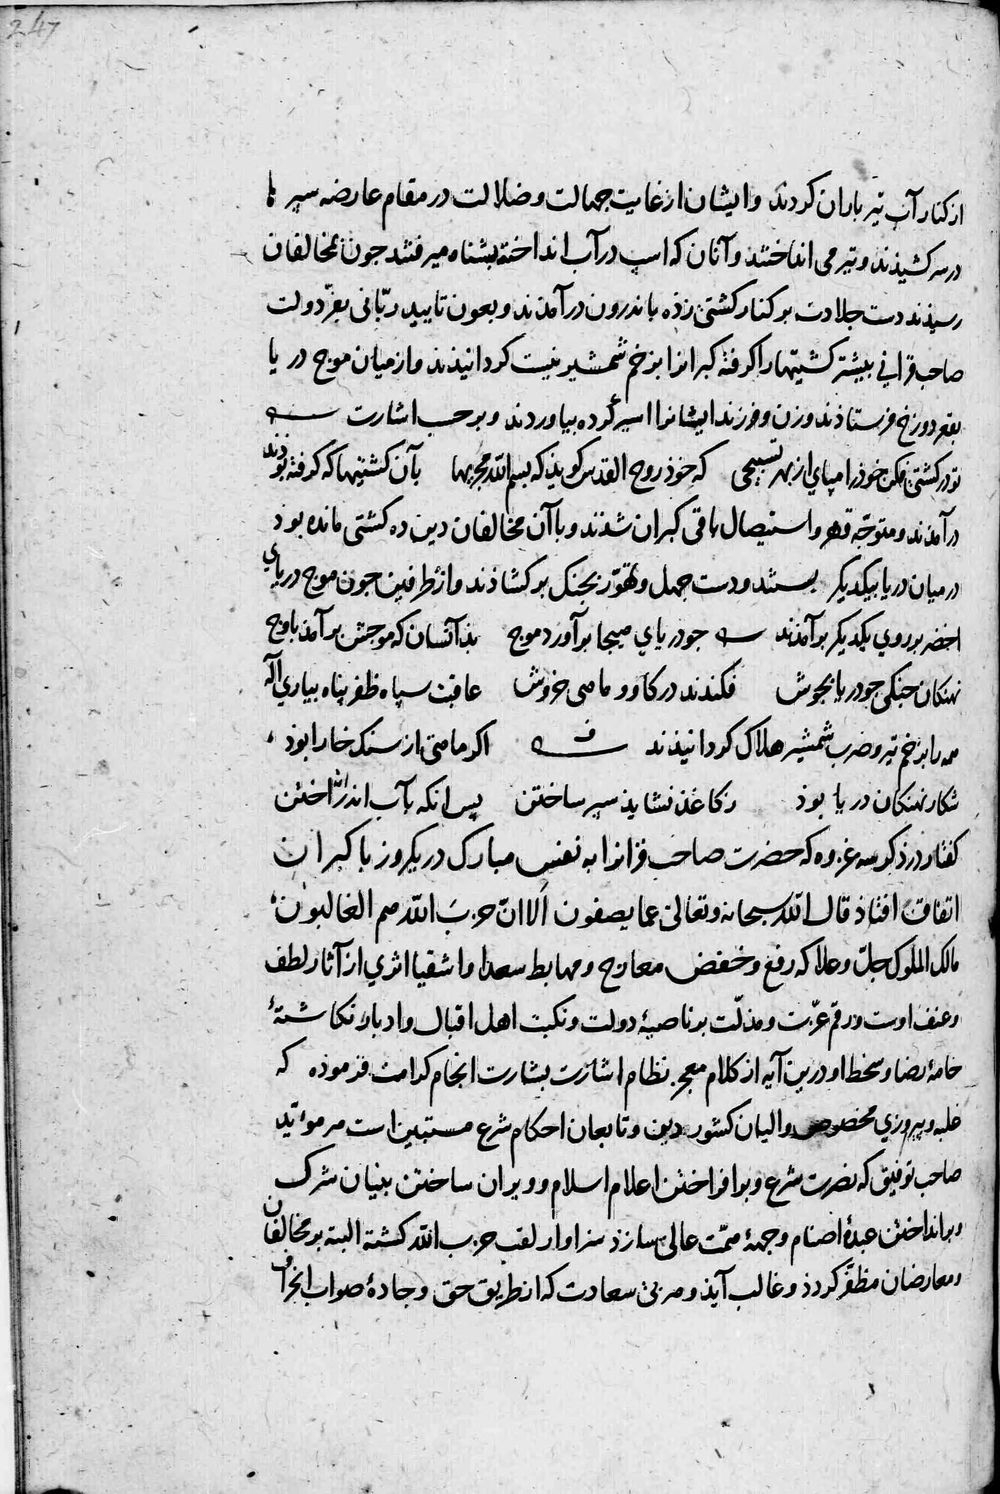 247
از کنار آب تیر باران کردند و ایشان از غایت جهالت و ضلالت در مقام عارضه سپرها
در سر کشیدند و تیر می انداختند و آنان که اسپ در آب انداخته بشناه میرفتند جون بمخالفان
رسیذند دست جلادت بر کنار کشتی زذه باندرون درآمذند و بعون تایید ربّانی بعزّ دولت
صاحب قرانی بیشتر کشتیها را کرفته کبرانرا بزخم شمشیر نیست کردانیذند و از میان موج دریا
بقعر دوزخ فرستاذند و زن و فرزند ایشانرا اسیر کرده بیاوردند و برحسب اشارت
تو در کشتی فکن خوذ را مپای از بهر تسبیحی که خوذ روح القدس کویذ که بسم الله مجریها بآن کشتیها که کرفته بوذند
درآمذند و متوجّه قهر و استیصال باقی کبران شذند و با آن مخالفان درین ده کشتی مانده بوذ
در میان دریا بیکدیکر بستند و دست جهل و تهوّر بجنک برکشاذند و از طرفین جون موج دریای
اخضر بر روی یکدیکر برآمذند جو دریای هیجا برآورد موج بذانسان که موجش برآمذ باوج
نهنکان جنکی جو دریا بجوش فکندند در کاو و ماهی خروش عاقبت سپاه ظفر پناه بیاری اله
همه را بزخم تیر و ضرب شمشیر هلاک کردانیذند ف اکر ماهی از سنک خارا بوذ
شکار نهنکان دریا بوذ ز کاغذ نشایذ سپر ساختن پس انکه بآب اندر انداختن
کفتار در ذکر سه غزوه که حضرت صاحب قرانرا به نفس مبارک در یکروز با کبران
اتفاق افتاذ قال الله سبحانه و تعالی عما یصفون الا انّ حزب الله هم الغالبون
مالک الملوک جلّ و علا که رفع و خفض معارج و مهابط سعدا و اشقیا اثری از آثار لطف
و عنف اوست و رقم عزّت و مذلّت بر ناصیهٔ دولت و نکبت اهل اقبال و ادبار نکاشتهٔ
خامهٔ رضا و سخط او درین آیه از کلام معجز نظام اشارت بشارت انجام کرامت فرموده که
غلبه و پیروزی مخصوص والیان کشور دین و تابعان احکام شرع مستبین است هر مؤیّد
صاحب توفیق که نصرت شرع و برافراختن اعلام اسلام و ویران ساختن بنیان شرک
و برانداختن عبدهٔ اصنام وجههٔ همّت عالی سازذ سزاوار لقب حزب الله کشته البته بر مخالفان
و معارضان مظفّر کردذ و غالب آیذ و هر بی سعادت که از طریق حق و جادهٔ صواب انحراف